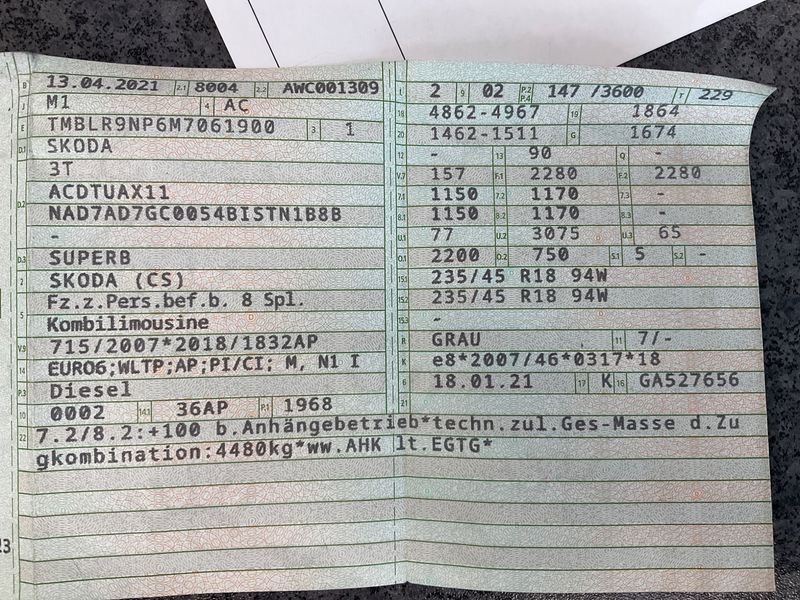 B 13.04.2021 2.1 8004 2.2 AWC001309
J M1 4 AC
E TMBLR9NP6M7061900 3 1
D.1 SKODA
3T
ACDTUAX11
D.2 NAD7AD7GC0054BISTN1B8B
-
D.3 SUPERB
2 SKODA (CS)
5 Fz.z.Pers.bef.b. 8 Spl.
Kombilimousine
V.9 715/2007*2018/1832AP
14 EURO6;WLTP;AP;PI/CI; M, N1 I
P.3 Diesel
10 0002 14.1 36AP P.1 1968
L 2 9 02 P.2 P.4 147 /3600 T 229
18 4862-4967 19 1864
20 1462-1511 G 1674
12 - 13 90 Q -
V.7 157 F.1 2280 F.2 2280
7.1 1150 7.2 1170 7.3 -
8.1 1150 8.2 1170 8.3 -
U.1 77 U.2 3075 U.3 65
O.1 2200 O.2 750 S.1 5 S.2 -
15.1 235/45 R18 94W
15.2 235/45 R18 94W
15.3 -
R GRAU 11 7/-
K e8*2007/46*0317*18
6 18.01.21 17 K 16 GA527656
21
22 7.2/8.2:+100 b.Anhängebetrieb*techn.zul.Ges-Masse d.Zu
gkombination:4480kg*ww.AHK lt.EGTG*